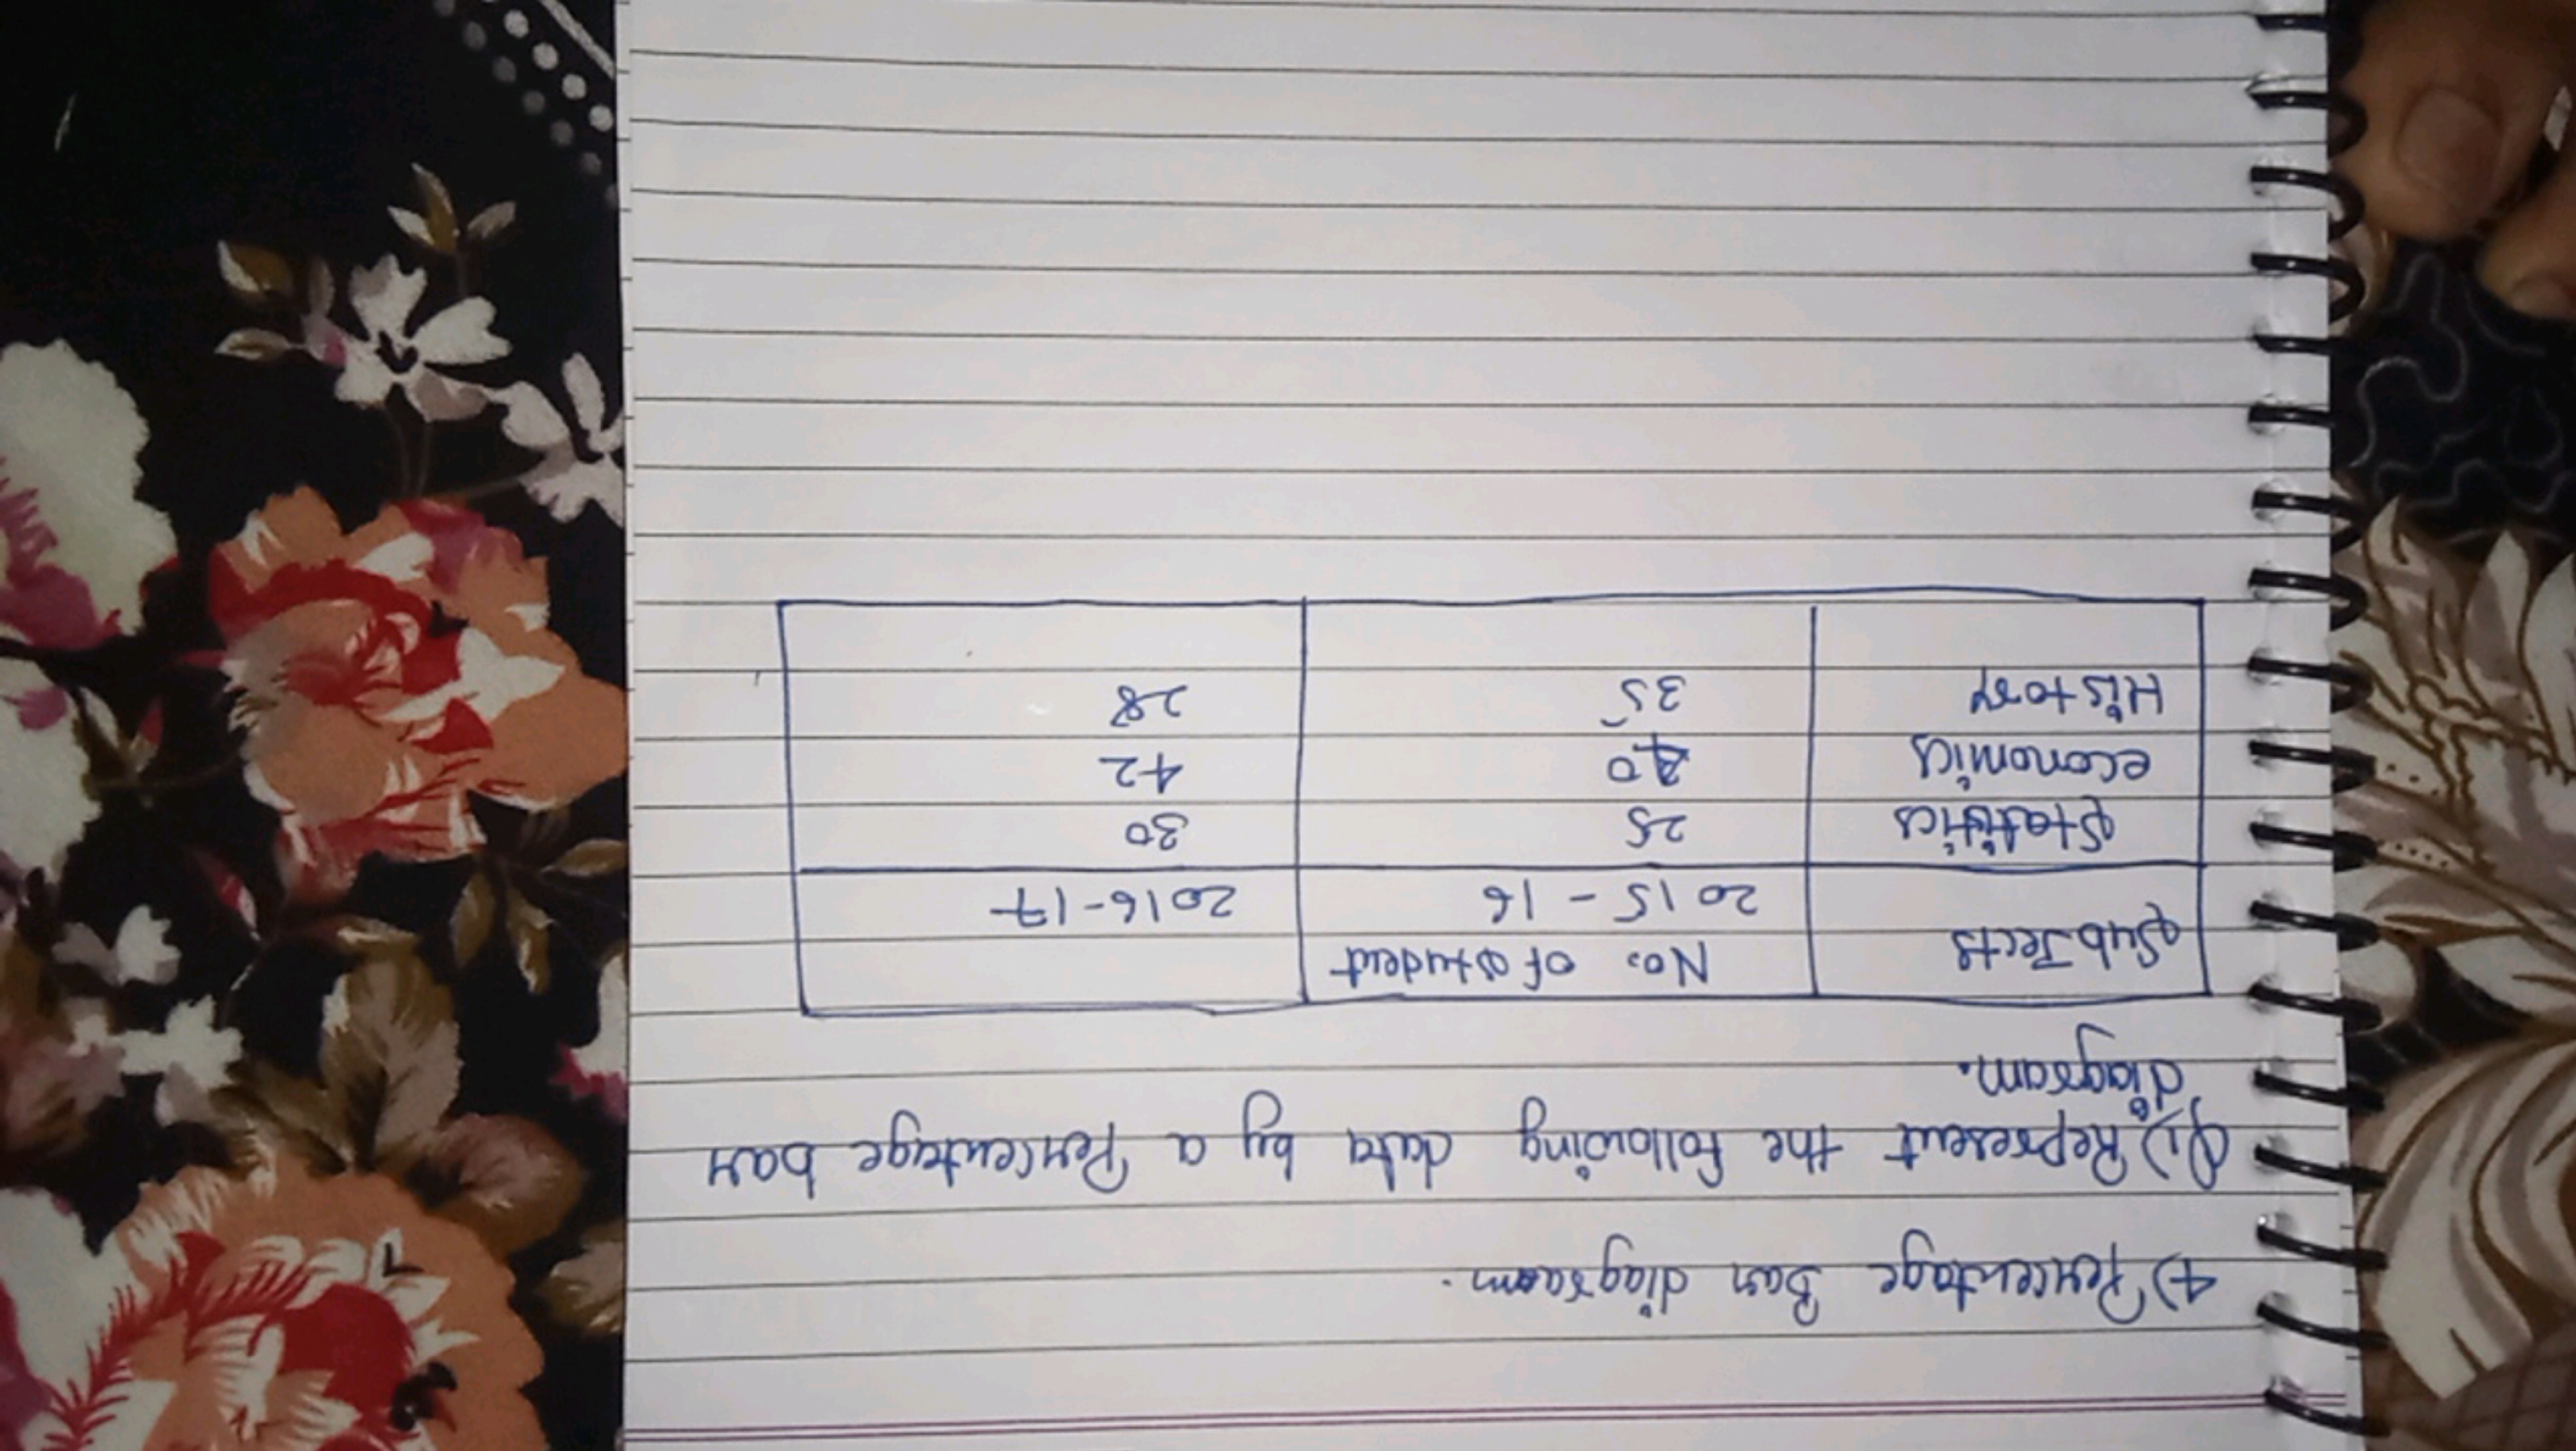 4) Percentage Bar diagram.
Q1) Represent the following data by a Percentage bar
diagram.
Subjects No. of student
2015 - 16 2016-17
Statistics 25 30
economics 40 42
History 35 28